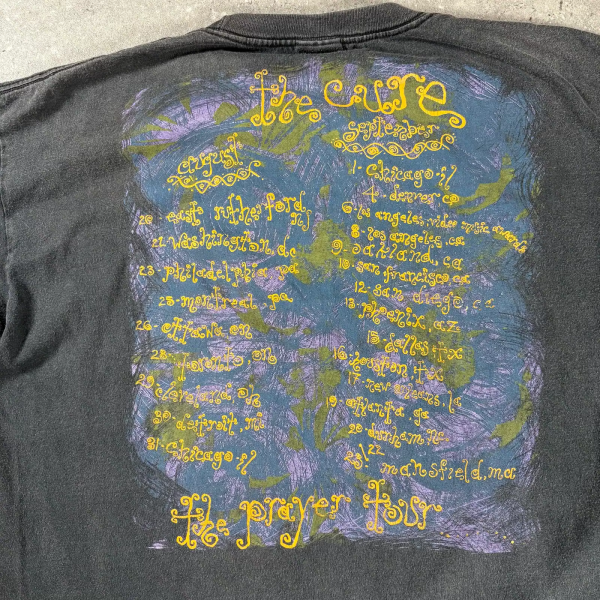 the cure
august
20 east rutherford nj
21 washington, dc
23 philadelphia pa
25 montreal, pq
26 ottawa on
28 toronto, on
29 cleveland oh
30 detroit, mi
31 chicago il
september
1 chicago il
4 denver co
6 los angeles, video music awards
8 los angeles, ca
9 oakland, ca
10 san francisco ca
12 san diego, ca
13 phoenix, az
15 dallas tx
16 houston tx
17 new orleans, la
19 atlanta ga
20 durham nc
22/23 mansfield, ma
the prayer tour